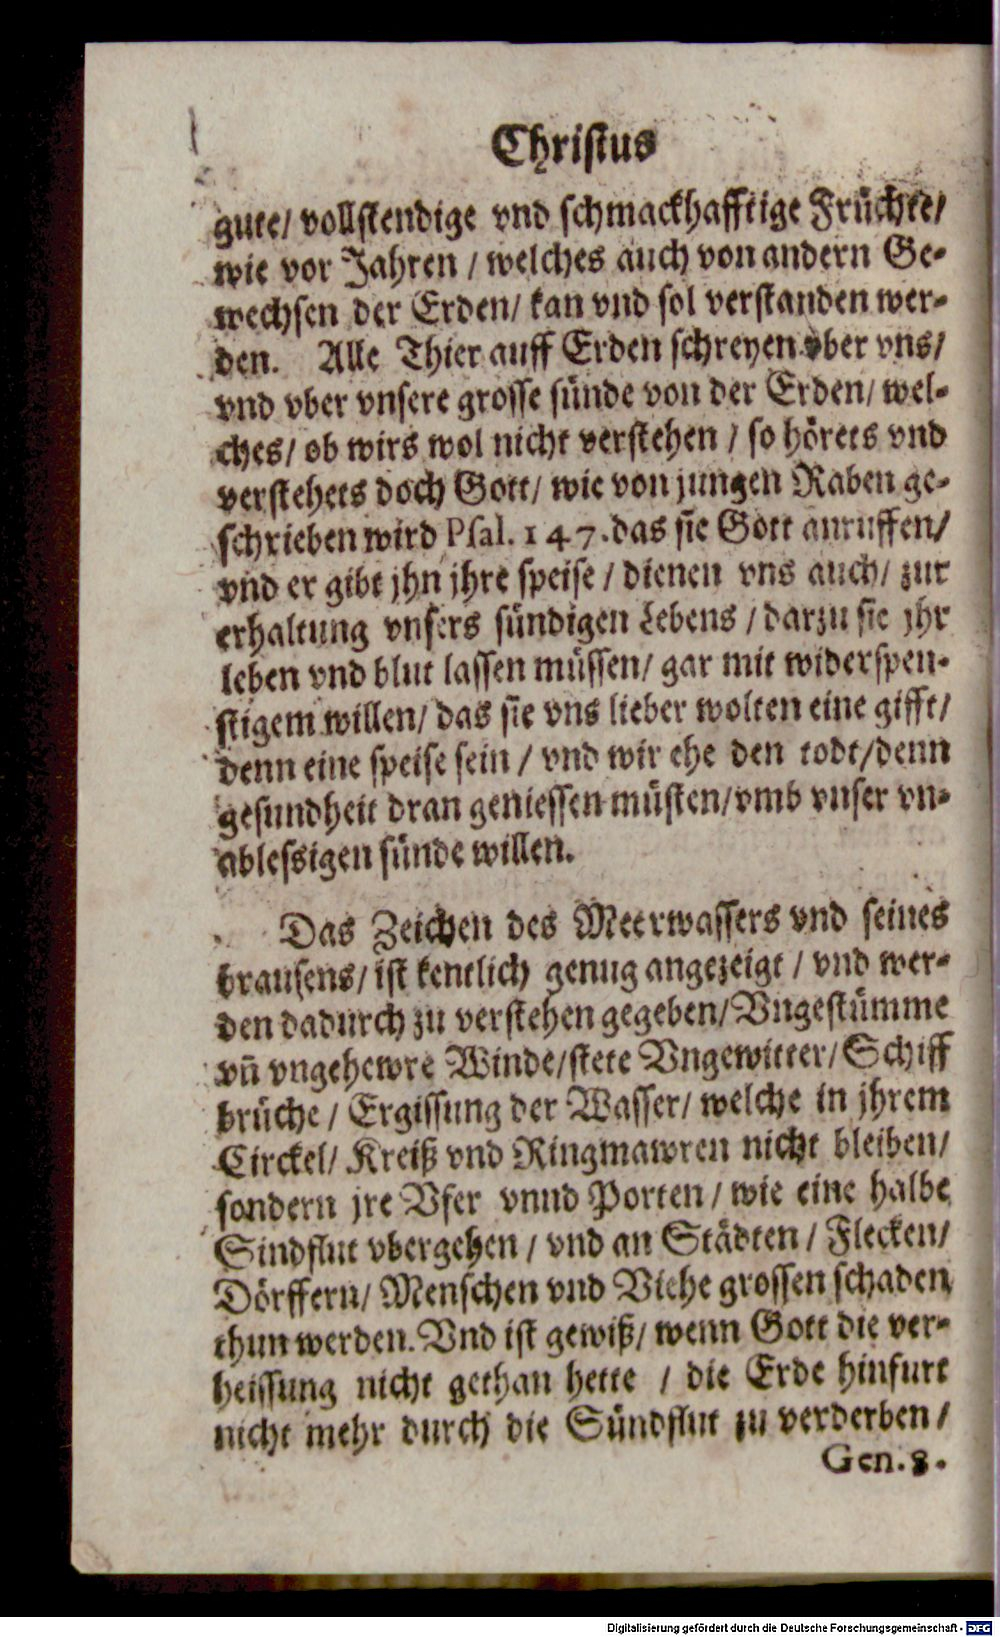 Christus
gute/ vollstendige vnd schmackhafftige Früchte/
wie vor Jahren / welches auch von andern Ge-
wechsen der Erden/ kan vnd sol verstanden wer-
den. Alle Thier auff Erden schreyen vber vns/
vnd vber vnsere grosse sünde von der Erden/ wel-
ches/ ob wirs wol nicht verstehen / so hörets vnd
verstehets doch Gott/ wie von jungen Raben ge-
schrieben wird Psal. 147. das sie Gott anruffen/
vnd er gibt jhn jhre speise / dienen vns auch/ zur
erhaltung vnsers sündigen Lebens / darzu sie jhr
leben vnd blut lassen müssen/ gar mit widerspen-
stigem willen/ das sie vns lieber wolten eine gifft/
denn eine speise sein / vnd wir ehe den todt/denn
gesundheit dran geniessen müsten/vmb vnser vn-
ablessigen sünde willen.
Das Zeichen des Meerwassers vnd seines
brausens/ ist kentlich genug angezeigt / vnd wer-
den dadurch zu verstehen gegeben/ Vngestümme
vn̄ vngehewre Winde/stete Vngewitter/ Schiff
brüche / Ergissung der Wasser/ welche in jhrem
Circkel/ Kreiß vnd Ringmawren nicht bleiben/
sondern jre Vfer vnnd Porten / wie eine halbe
Sindflut vbergehen / vnd an Städten / Flecken/
Dörffern/ Menschen vnd Viehe grossen schaden
thun werden. Vnd ist gewiß/ wenn Gott die ver-
heissung nicht gethan hette / die Erde hinfurt
nicht mehr durch die Sündflut zu verderben /
Gen. 8.
Digitalisierung gefördert durch die Deutsche Forschungsgemeinschaft - DFG